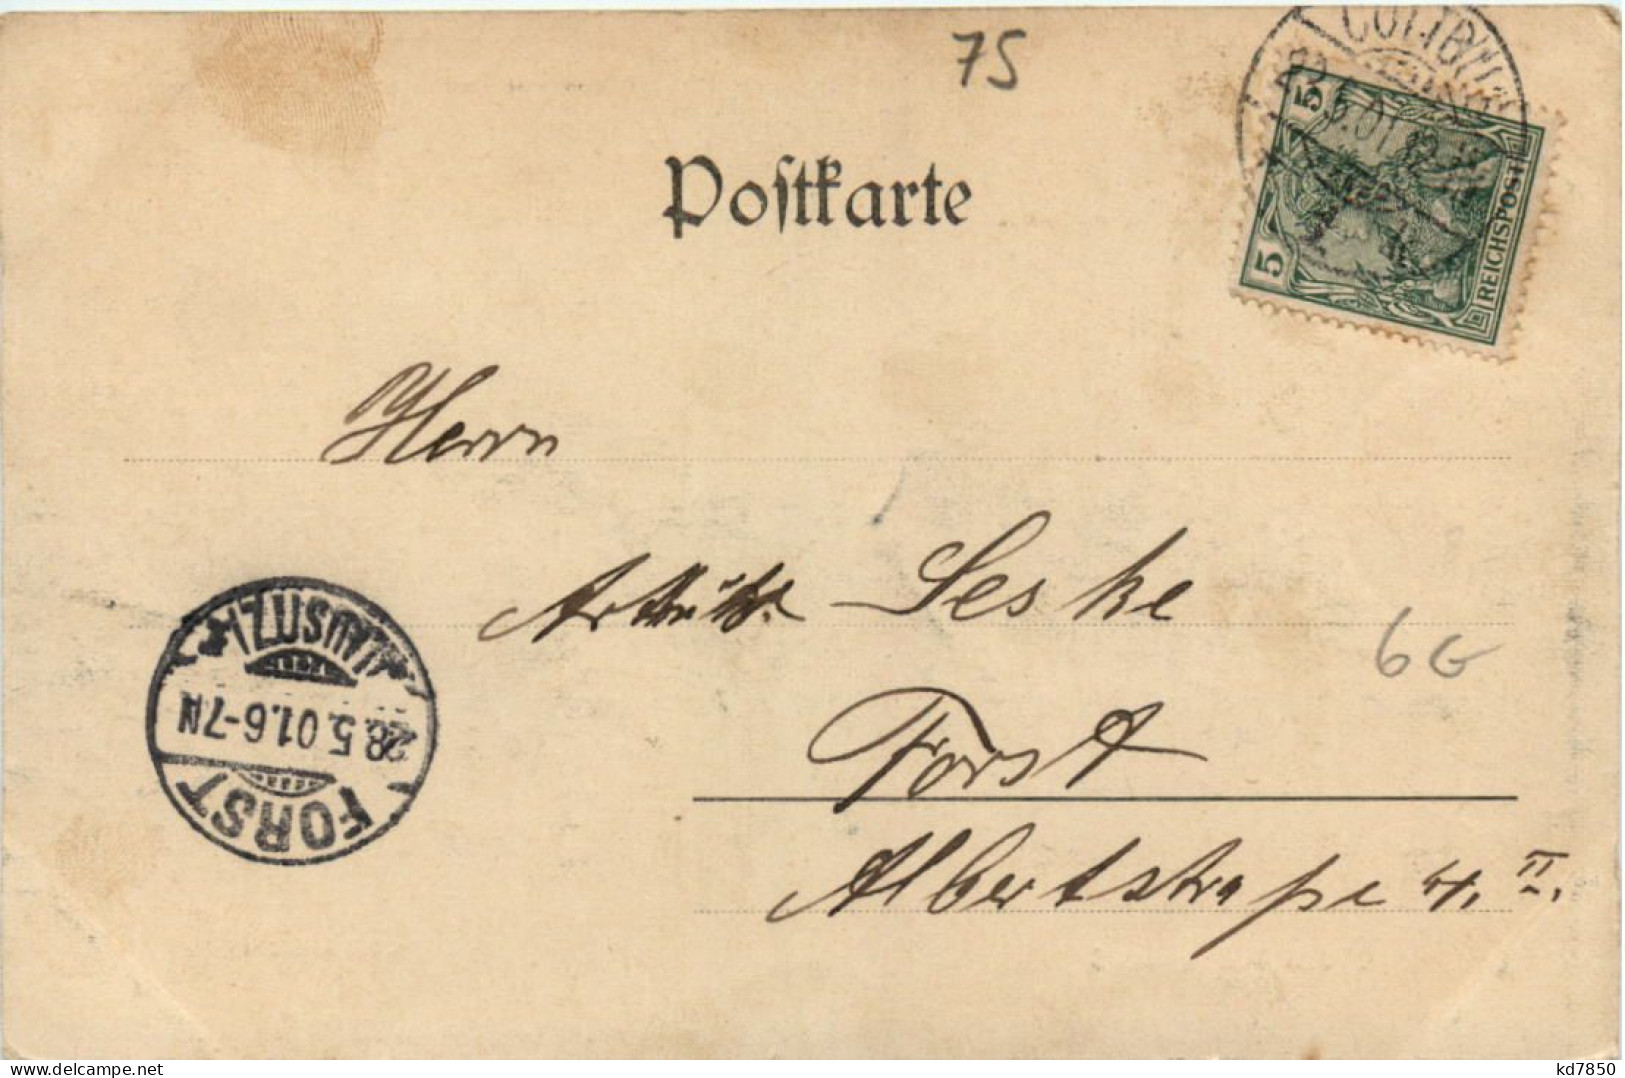 75
COTTBUS
5.01
5
5
REICHSPOST
Postkarte
Herrn
Seske
Forst
Albertstraße 4. II.
6G
FORST
28.5.01.6-7N
(LAUSITZ)
kd7850